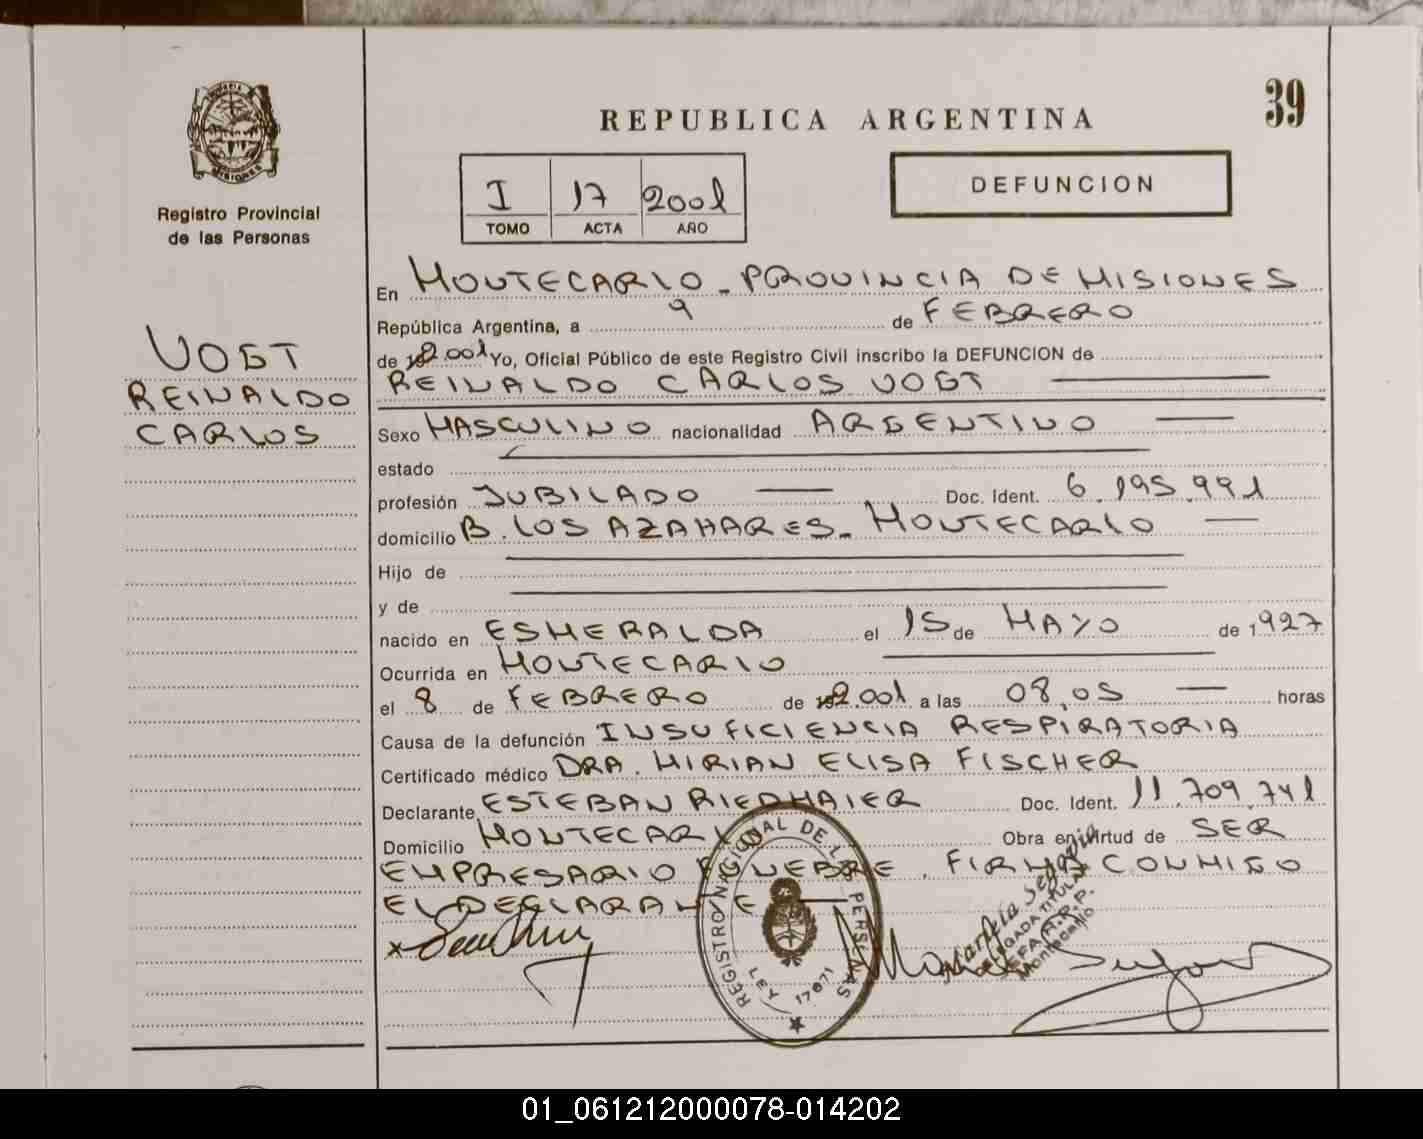 39
REPUBLICA ARGENTINA
DEFUNCION
I 17 2001
TOMO ACTA AÑO
MISIONES
Registro Provincial
de las Personas
VOGT
REINALDO
CARLOS
En MONTECARLO - PROVINCIA DE MISIONES
República Argentina, a 9 de FEBRERO
de 2.001 Yo, Oficial Público de este Registro Civil inscribo la DEFUNCION de
REINALDO CARLOS VOGT
Sexo MASCULINO nacionalidad ARGENTINO
estado
profesión JUBILADO Doc. Ident. 6.195.991
domicilio B. LOS AZAHARES - MONTECARLO
Hijo de
y de
nacido en ESMERALDA el 15 de MAYO de 1927
Ocurrida en MONTECARLO
el 8 de FEBRERO de 2.001 a las 08,05 horas
Causa de la defunción INSUFICIENCIA RESPIRATORIA
Certificado médico DRA. MIRIAN ELISA FISCHER
Declarante ESTEBAN RIEDMAIER Doc. Ident. 11.709.741
Domicilio MONTECARLO Obra en virtud de SER
EMPRESARIO FUNEBRE. FIRMA CONMIGO
EL DECLARANTE
REGISTRO NACIONAL DE LAS PERSONAS
LEY 17671
Mariela Segovia
DELEGADA TITULAR
Montecarlo
01_061212000078-014202